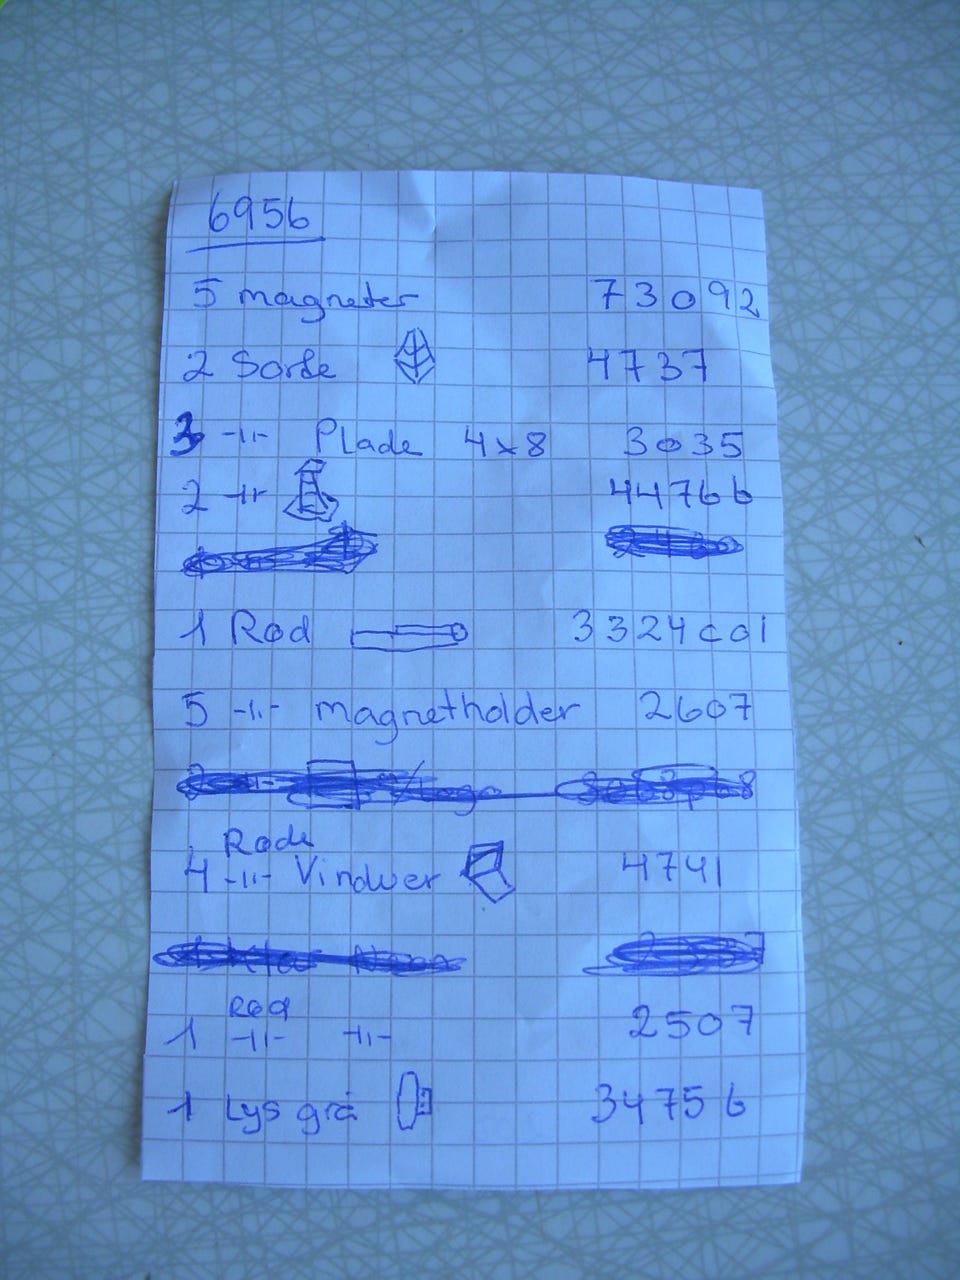 6956
5 magneter 73092
2 Sorte 4737
3 -11- Plade 4x8 3035
2 -11- 4476b
1 Rød 3324c01
5 -11- magnetholder 2607
Røde
4 -11- Vinduer 4741
Rød
1 -11- -11- 2507
1 Lys grå 3475b